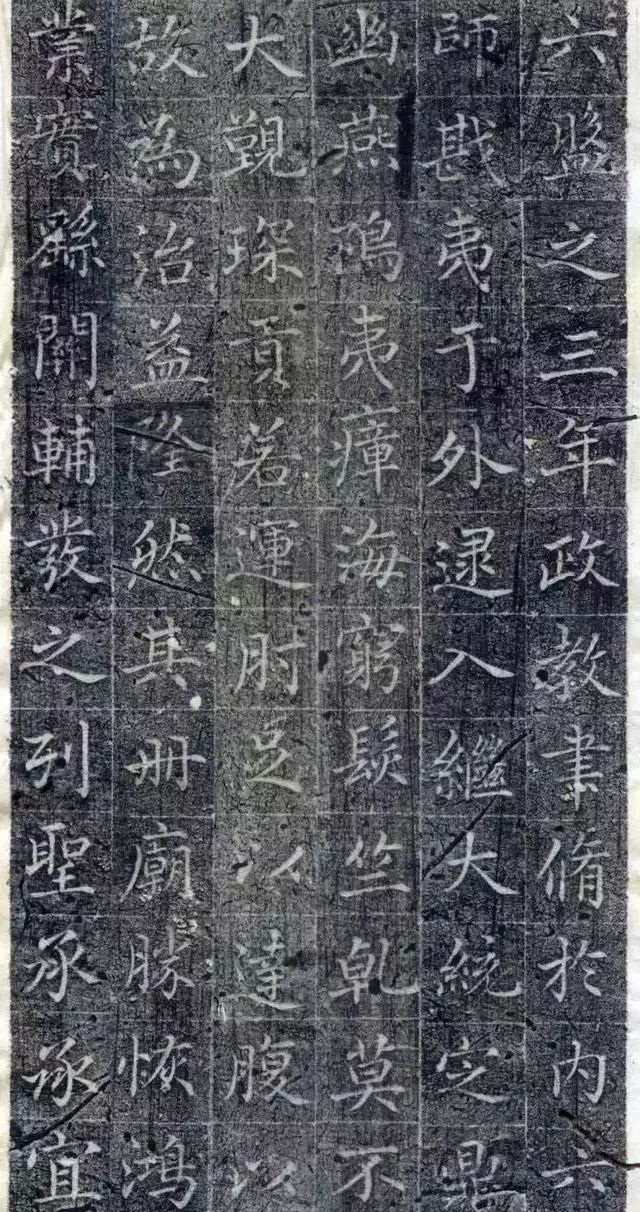 六盤之三年政教聿脩於内六
師戡夷于外逮入繼大統定鼎
幽燕隝夷瘴海窮髮竺乹莫不
大覲琛貢若運肘足以達腹以
故為治益隆然其册廟恢鴻
業實繇關輔發之列聖承承宜